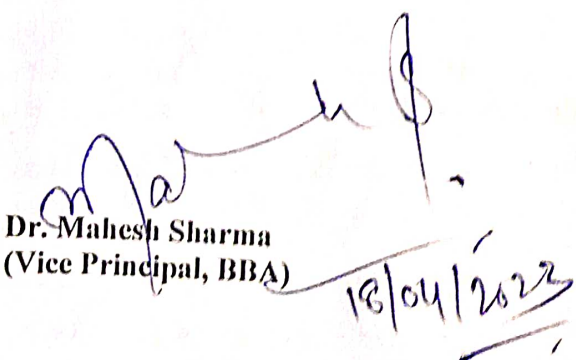 Dr. Mahesh Sharma
(Vice Principal, BBA)
18/04/2023